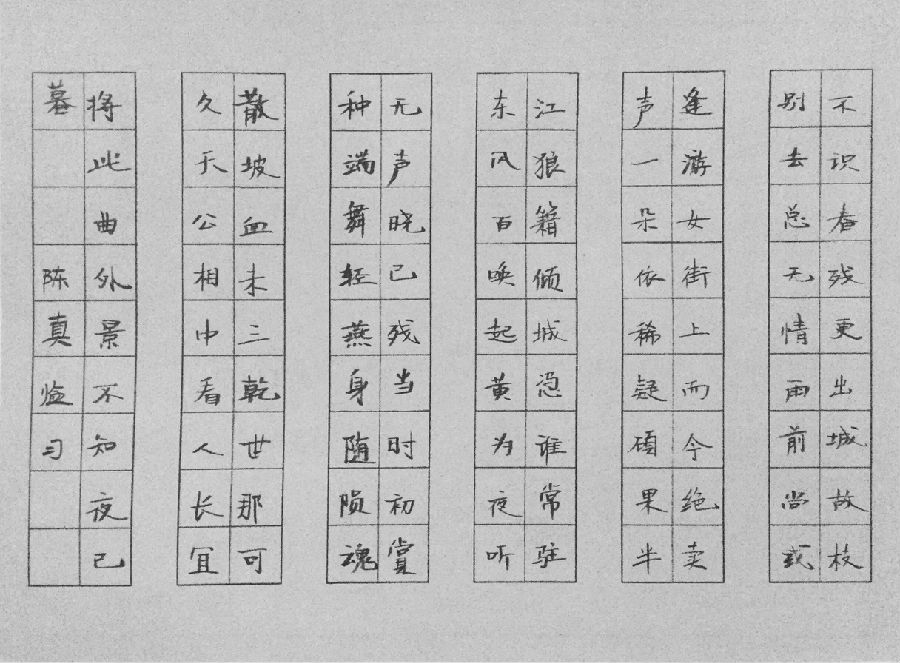 不识春残更出城故枝
别去总无情雨前尚或
逢游女街上而今绝卖
声一朵依稀疑硕果半
江狼籍倾城恐谁常驻
东风百唤起黄为夜听
无声晓已残当时初赏
种端舞轻燕身随陨魂
散坡血未三乾世那可
久天公相中看人长宜
将此曲外景不知夜已
暮
陈真临习